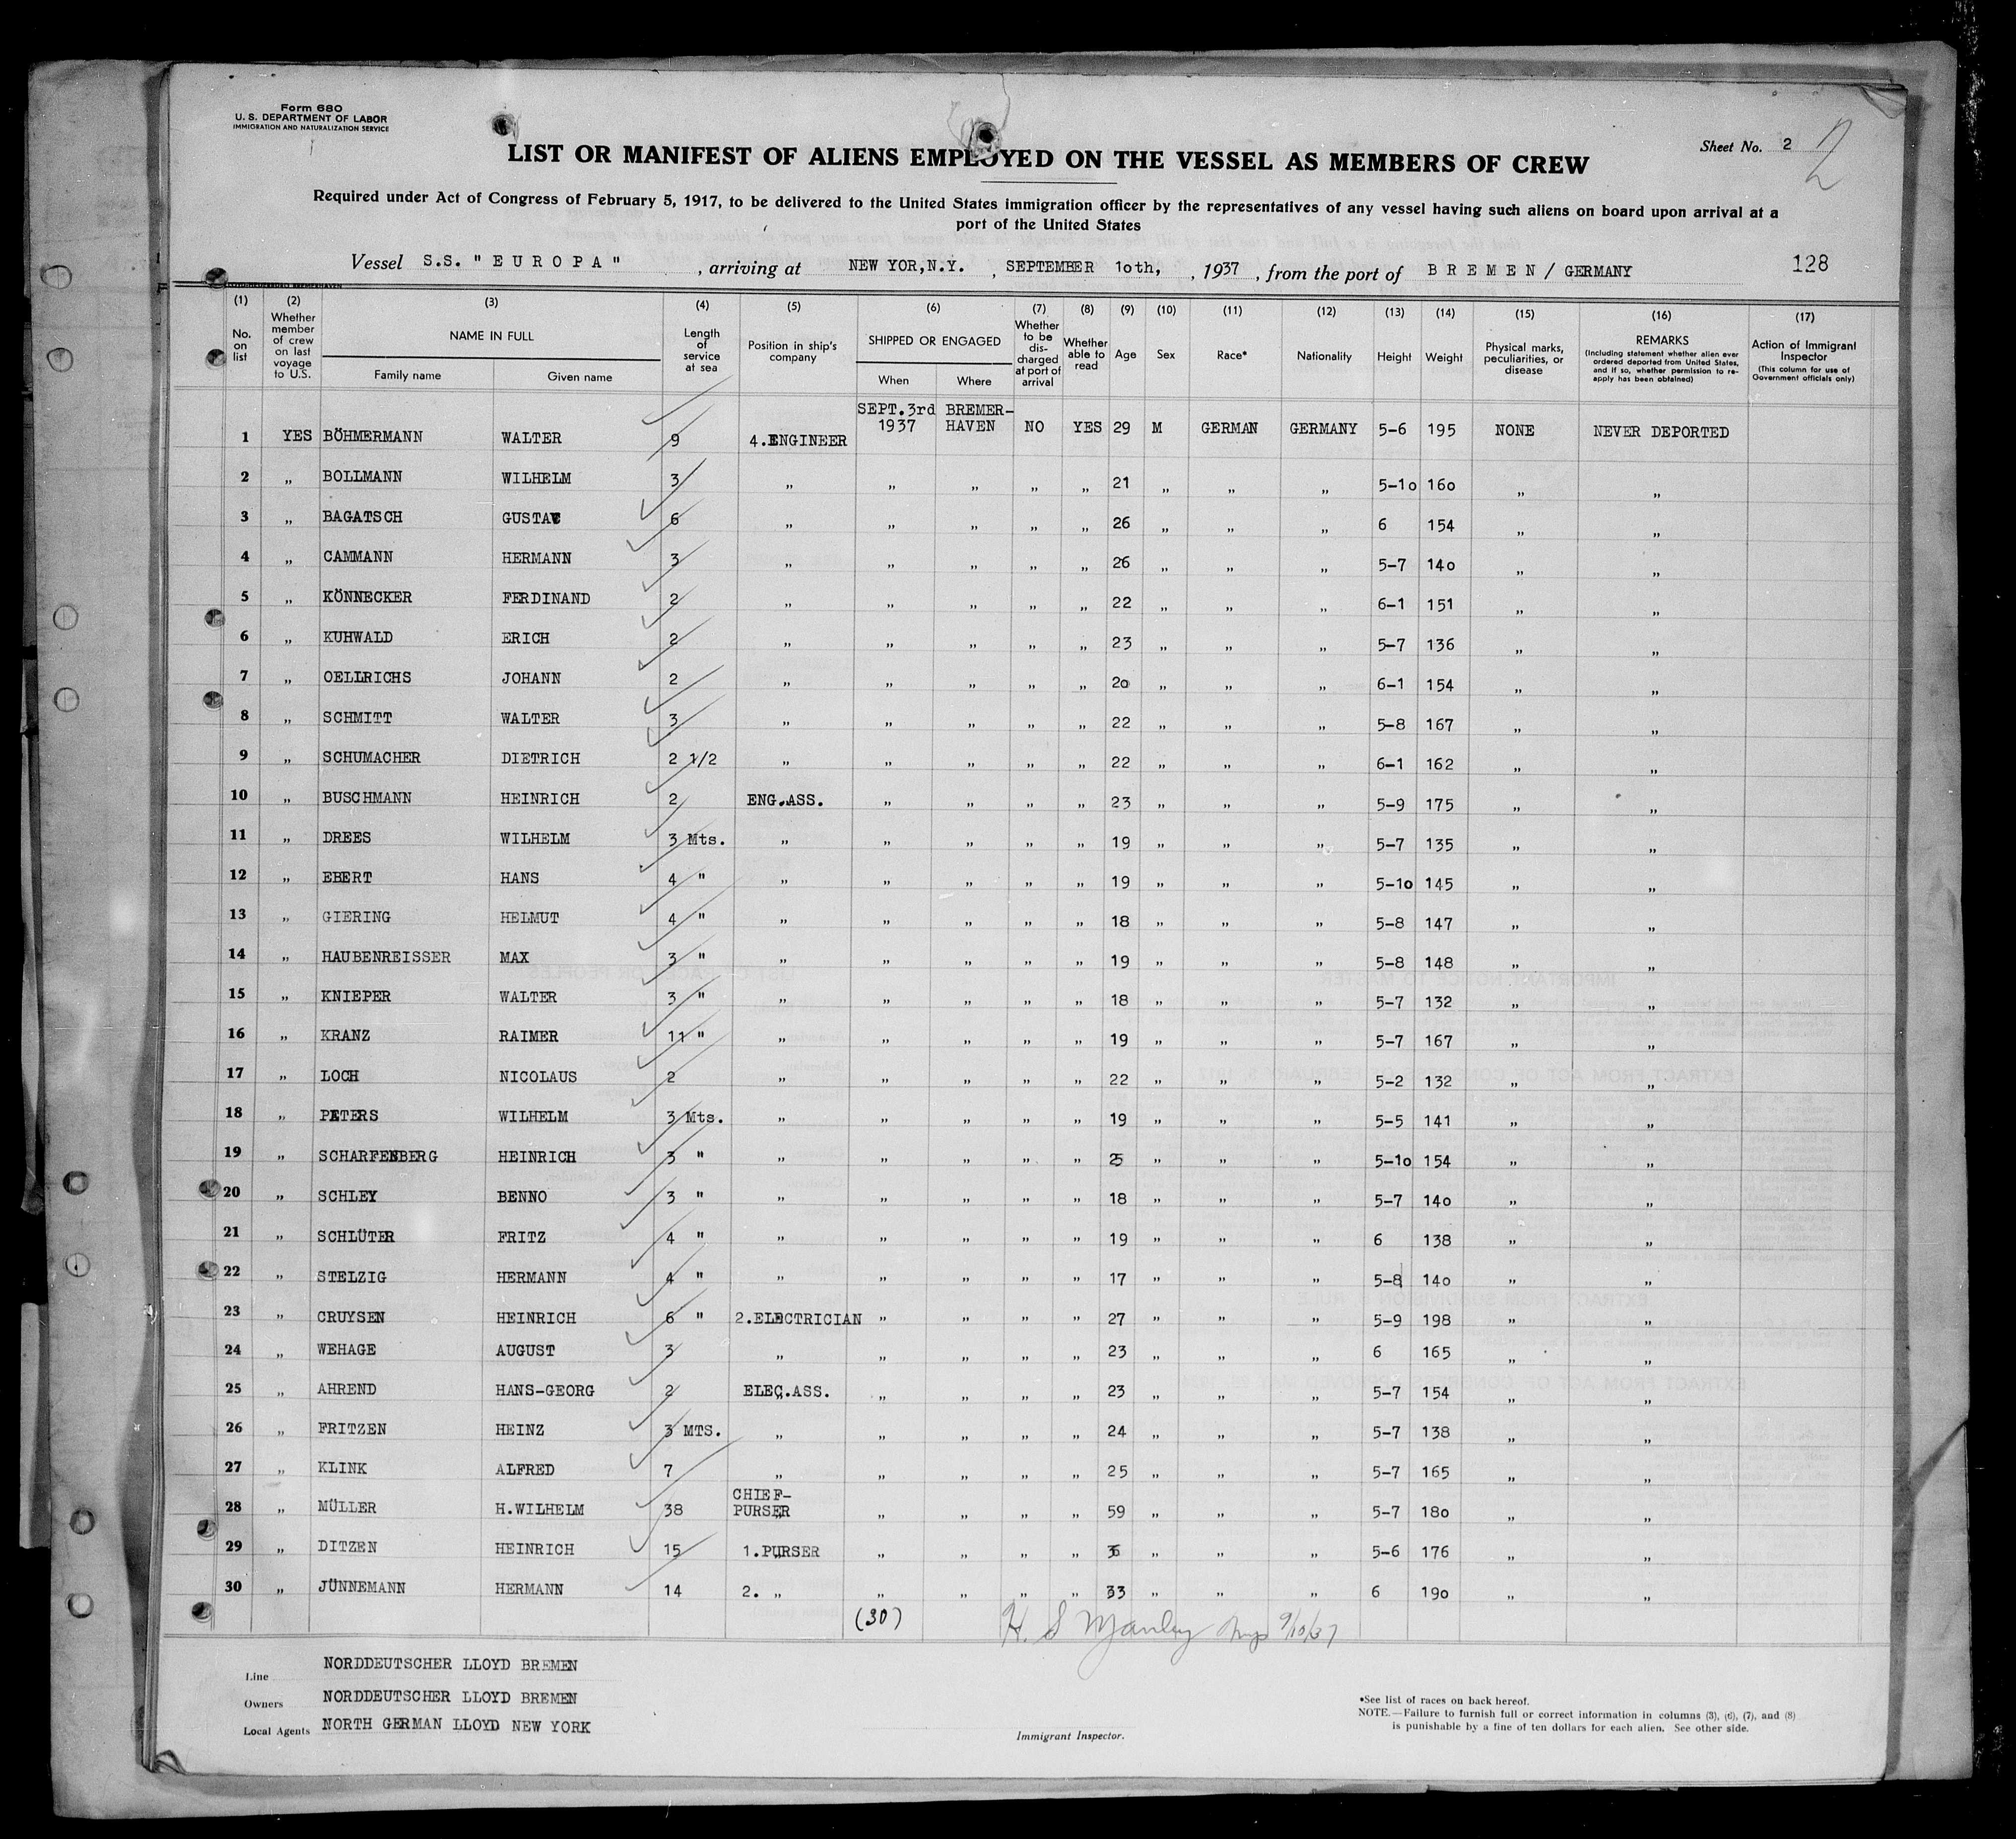 Form 680
U. S. DEPARTMENT OF LABOR
IMMIGRATION AND NATURALIZATION SERVICE
Sheet No. 2
2
LIST OR MANIFEST OF ALIENS EMPLOYED ON THE VESSEL AS MEMBERS OF CREW
Required under Act of Congress of February 5, 1917, to be delivered to the United States immigration officer by the representatives of any vessel having such aliens on board upon arrival at a
port of the United States
Vessel S.S. "EUROPA", arriving at NEW YOR,N.Y., SEPTEMBER 1oth, , 1937, from the port of BREMEN/ GERMANY
128
(1) No. on list (2) Whether member of crew on last voyage to U.S. (3) NAME IN FULL Family name Given name (4) Length of service at sea (5) Position in ship's company (6) SHIPPED OR ENGAGED When Where (7) Whether to be discharged at port of arrival (8) Whether able to read (9) Age (10) Sex (11) Race* (12) Nationality (13) Height (14) Weight (15) Physical marks, peculiarities, or disease (16) REMARKS (Including statement whether alien ever ordered deported from United States, and if so, whether permission to reapply has been obtained) (17) Action of Immigrant Inspector (This column for use of Government officials only)
1 YES BÖHMERMANN WALTER 9 4.ENGINEER SEPT.3rd 1937 BREMER-HAVEN NO YES 29 M GERMAN GERMANY 5-6 195 NONE NEVER DEPORTED
2 „ BOLLMANN WILHELM 3 „ „ „ „ „ 21 „ „ „ 5-1o 16o „ „
3 „ BAGATSCH GUSTAV 6 „ „ „ „ „ 26 „ „ „ 6 154 „ „
4 „ CAMMANN HERMANN 3 „ „ „ „ „ 26 „ „ „ 5-7 14o „ „
5 „ KÖNNECKER FERDINAND 2 „ „ „ „ „ 22 „ „ „ 6-1 151 „ „
6 „ KUHWALD ERICH 2 „ „ „ „ „ 23 „ „ „ 5-7 136 „ „
7 „ OELLRICHS JOHANN 2 „ „ „ „ „ 2o „ „ „ 6-1 154 „ „
8 „ SCHMITT WALTER 3 „ „ „ „ „ 22 „ „ „ 5-8 167 „ „
9 „ SCHUMACHER DIETRICH 2 1/2 „ „ „ „ „ 22 „ „ „ 6-1 162 „ „
10 „ BUSCHMANN HEINRICH 2 ENG.ASS. „ „ „ „ 23 „ „ „ 5-9 175 „ „
11 „ DREES WILHELM 3 Mts. „ „ „ „ „ 19 „ „ „ 5-7 135 „ „
12 „ EBERT HANS 4 " „ „ „ „ „ 19 „ „ „ 5-1o 145 „ „
13 „ GIERING HELMUT 4 " „ „ „ „ „ 18 „ „ „ 5-8 147 „ „
14 „ HAUBENREISSER MAX 3 " „ „ „ „ „ 19 „ „ „ 5-8 148 „ „
15 „ KNIEPER WALTER 3 " „ „ „ „ „ 18 „ „ „ 5-7 132 „ „
16 „ KRANZ RAIMER 11 " „ „ „ „ „ 19 „ „ „ 5-7 167 „ „
17 „ LOCH NICOLAUS 2 „ „ „ „ „ 22 „ „ „ 5-2 132 „ „
18 „ PETERS WILHELM 3 Mts. „ „ „ „ „ 19 „ „ „ 5-5 141 „ „
19 „ SCHARFENBERG HEINRICH 3 " „ „ „ „ „ 25 „ „ „ 5-1o 154 „ „
20 „ SCHLEY BENNO 3 " „ „ „ „ „ 18 „ „ „ 5-7 14o „ „
21 „ SCHLÜTER FRITZ 4 " „ „ „ „ „ 19 „ „ „ 6 138 „ „
22 „ STELZIG HERMANN 4 " „ „ „ „ „ 17 „ „ „ 5-8 14o „ „
23 „ CRUYSEN HEINRICH 6 " 2.ELECTRICIAN „ „ „ „ 27 „ „ „ 5-9 198 „ „
24 „ WEHAGE AUGUST 3 „ „ „ „ „ 23 „ „ „ 6 165 „ „
25 „ AHREND HANS-GEORG 2 ELEC.ASS. „ „ „ „ 23 „ „ „ 5-7 154 „ „
26 „ FRITZEN HEINZ 3 MTS. „ „ „ „ „ 24 „ „ „ 5-7 138 „ „
27 „ KLINK ALFRED 7 „ „ „ „ „ 25 „ „ „ 5-7 165 „ „
28 „ MÜLLER H.WILHELM 38 CHIEF-PURSER „ „ „ „ 59 „ „ „ 5-7 18o „ „
29 „ DITZEN HEINRICH 15 1.PURSER „ „ „ „ „ „ „ 5-6 176 „ „
30 „ JÜNNEMANN HERMANN 14 2. „ „ „ „ „ 33 „ „ „ 6 19o „ „
(30) H. S Manley 9/10/37
Line NORDDEUTSCHER LLOYD BREMEN
Owners NORDDEUTSCHER LLOYD BREMEN
Local Agents NORTH GERMAN LLOYD NEW YORK
Immigrant Inspector.
*See list of races on back hereof.
NOTE.—Failure to furnish full or correct information in columns (3), (6), (7), and (8)
is punishable by a fine of ten dollars for each alien. See other side.